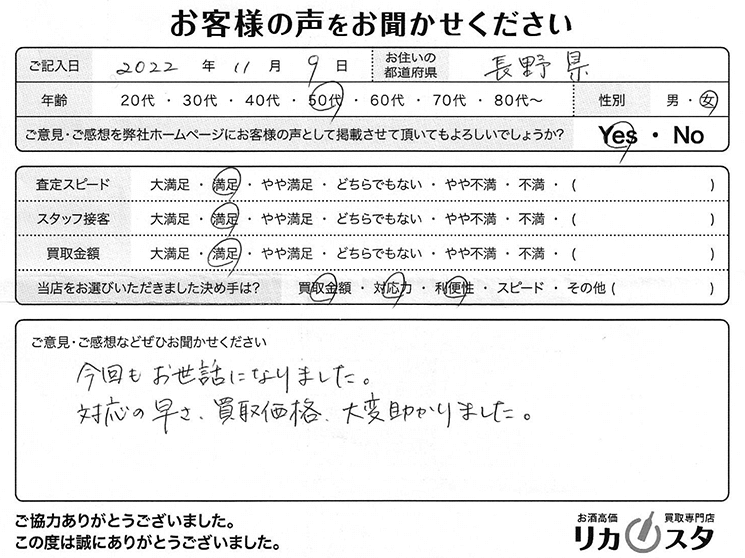 お客様の声をお聞かせください
ご記入日 2022 年 11 月 9 日 お住いの都道府県 長野県
年齢 20代 ・ 30代 ・ 40代 ・ 50代 ・ 60代 ・ 70代 ・ 80代〜 性別 男 ・ 女
ご意見・ご感想を弊社ホームページにお客様の声として掲載させて頂いてもよろしいでしょうか? Yes ・ No
査定スピード 大満足 ・ 満足 ・ やや満足 ・ どちらでもない ・ やや不満 ・ 不満 ・ ( )
スタッフ接客 大満足 ・ 満足 ・ やや満足 ・ どちらでもない ・ やや不満 ・ 不満 ・ ( )
買取金額 大満足 ・ 満足 ・ やや満足 ・ どちらでもない ・ やや不満 ・ 不満 ・ ( )
当店をお選びいただきました決め手は? 買取金額 ・ 対応力 ・ 利便性 ・ スピード ・ その他 ( )
ご意見・ご感想などぜひお聞かせください
今回もお世話になりました。
対応の早さ、買取価格、大変助かりました。
ご協力ありがとうございました。
この度は誠にありがとうございました。
お酒高価 買取専門店
リカスタ